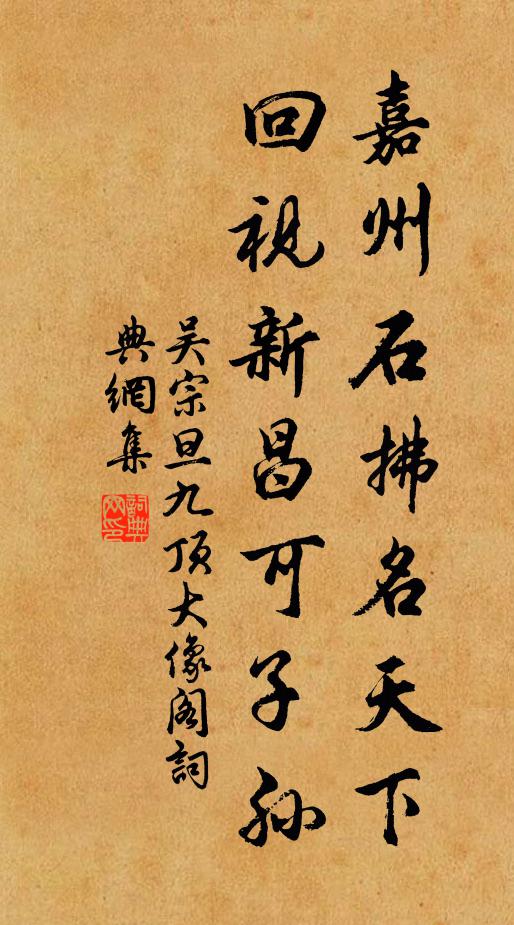 嘉州石拂名天下
回视新昌可子孙
吴宗旦九顶大像阁詞
典網集
詞典網印